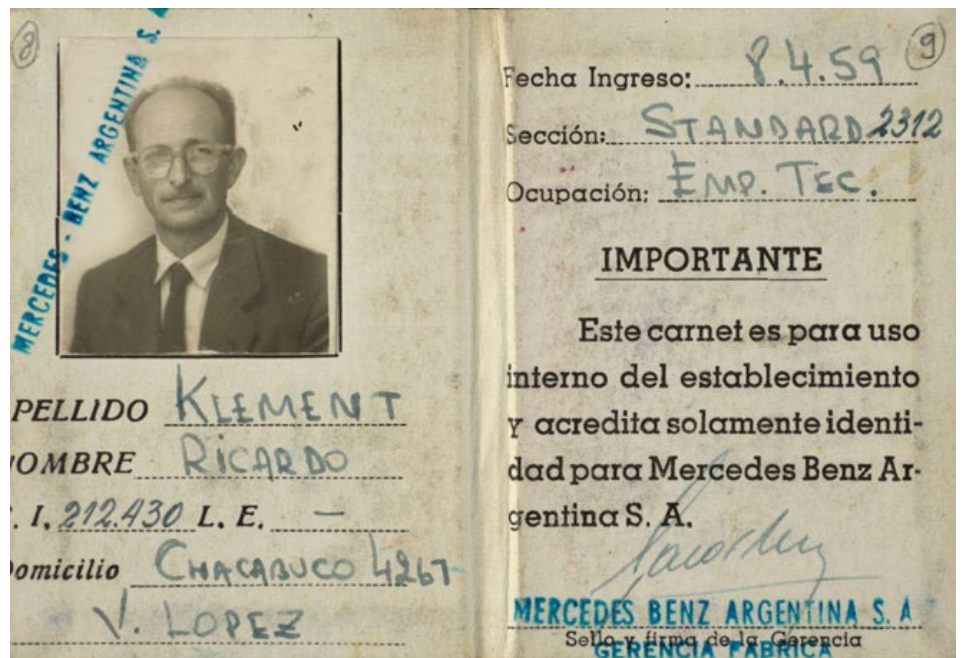 8
MERCEDES - BENZ ARGENTINA S. A
PELLIDO KLEMENT
OMBRE RICARDO
. I. 212.430 L. E. —
omicilio CHACABUCO 4267
V. LOPEZ
9
Fecha Ingreso: 8.4.59
Sección: STANDARD 2312
Ocupación: EMP. TEC.
IMPORTANTE
Este carnet es para uso
interno del establecimiento
y acredita solamente identi-
dad para Mercedes Benz Ar-
gentina S. A.
MERCEDES BENZ ARGENTINA S. A
Sello y firma de la Gerencia
GERENCIA FABRICA